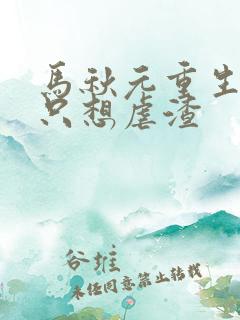 馬秋元重生
只想虐渣
谷堆
未经同意禁止转载